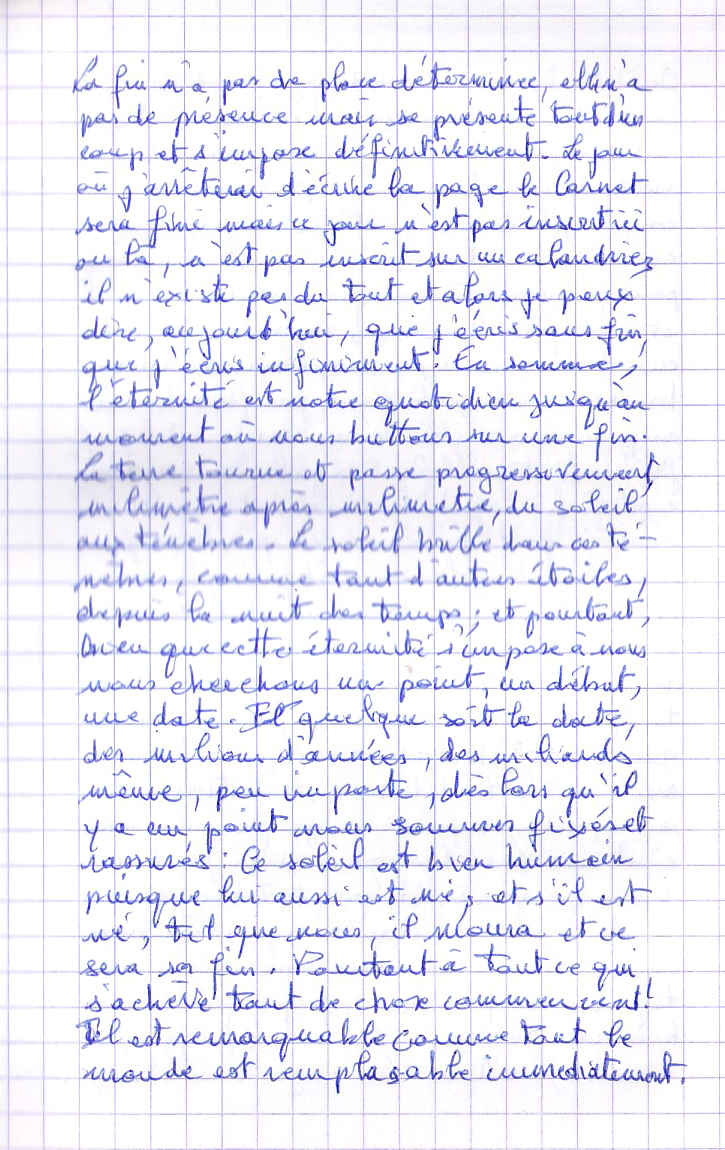 La fin n'a pas de place déterminée, elle n'a
pas de présence mais se présente tout d'un
coup et s'impose définitivement. Le jour
où j'arrêterai d'écrire la page le Carnet
sera fini mais ce jour n'est pas inscrit ici
ou là, n'est pas inscrit sur un calandriez
il n'existe pas du tout et alors je peux
dire, aujourd'hui, que j'écris sans fin,
que j'écris infiniment. En somme,
l'éternité est notre quotidien jusqu'au
moment où nous buttons sur une fin.
La terre tourne et passe progressivement,
milimètre après milimètre, du soleil
aux ténèbres. Le soleil brille dans ces té-
nèbres, comme tant d'autres étoiles,
depuis la nuit des temps; et pourtant,
bien que cette éternité s'impose à nous
nous cherchons un point, un début,
une date. Et quelque soit la date,
des milions d'années, des miliards
même, peu importe, dès lors qu'il
y a un point nous sommes fixés et
rassurés: Ce soleil est bien humain
puisque lui aussi est né, et s'il est
né, tel que nous, il moura et ce
sera sa fin. Pourtant à tout ce qui
s'achève tant de chose commencent!
Il est remarquable comme tout le
monde est remplaçable immédiatement.